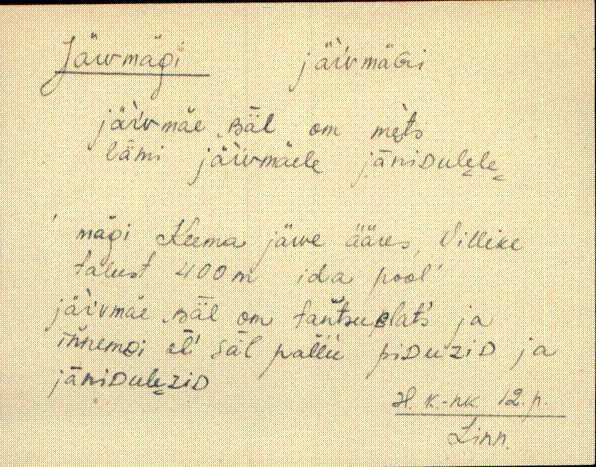 Järvmägi järvmäGi
järvmäe ᴃäl om mets
lämi järvmäele jäniDulele
'mägi Keema järve ääres, Villike
talust 400 m ida pool'
järvmäe ᴃäl om tantsuplats ja
innemBi säl pallu piDuziD ja
jäniDuleziD
H. k.-nk 12. p.
Linn.